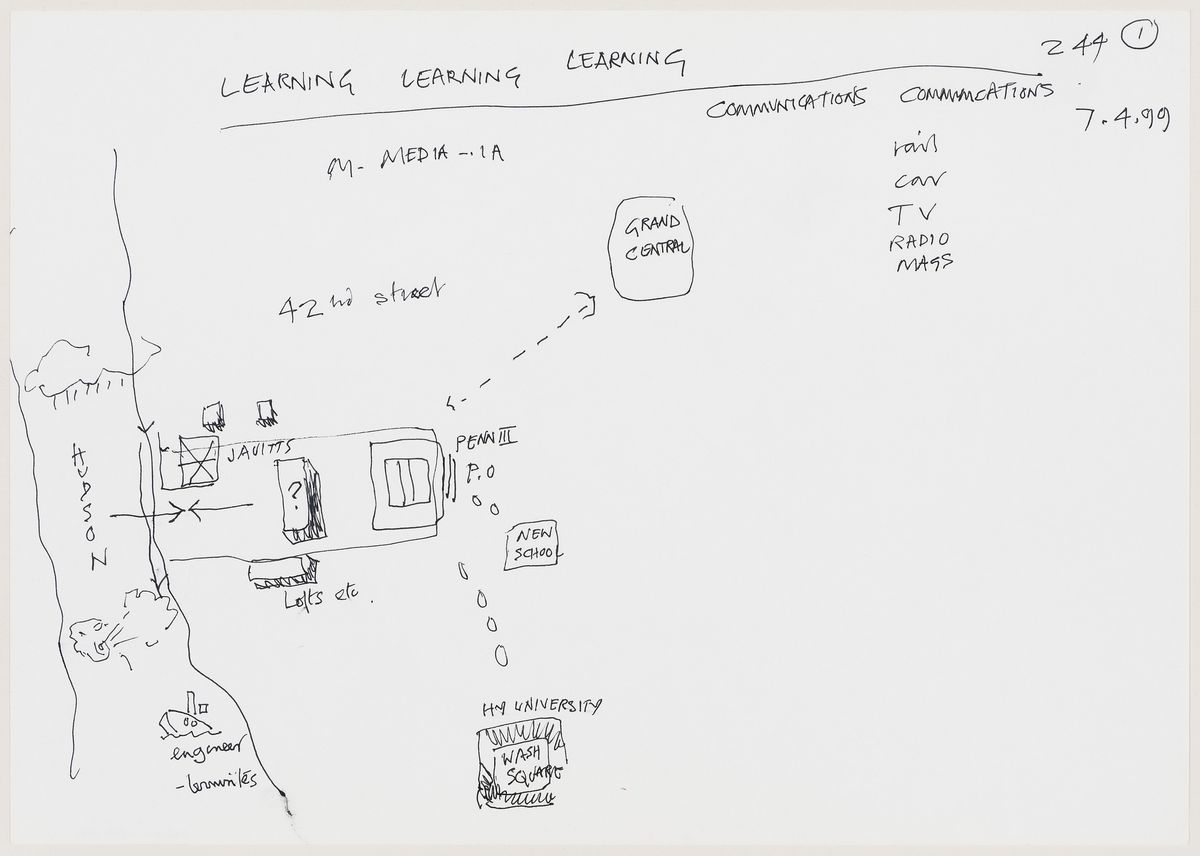 244 ①
LEARNING LEARNING LEARNING
COMMUNICATIONS COMMMCATIONS
7.4.99
M- MEDIA -.1A
rail
car
TV
RADIO
MASS
GRAND
CENTRAL
42nd street
HUDSON
JAVITTS
PENN III
P.O
?
NEW
SCHOOL
Lofts etc.
NY UNIVERSITY
WASH
SQUARE
engineer